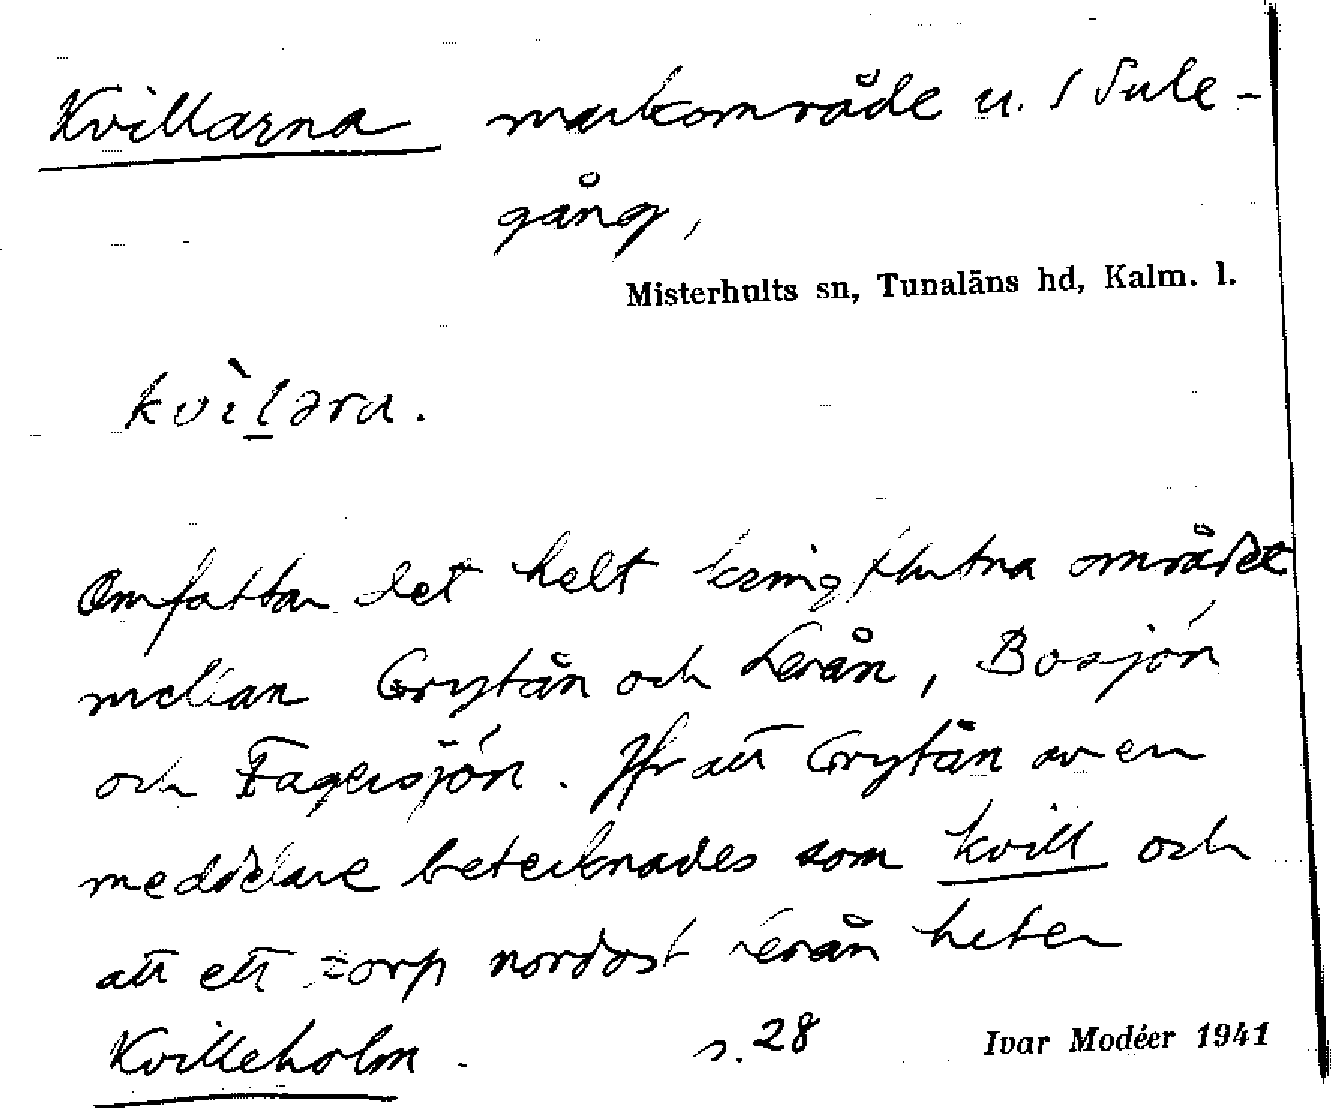 Kvillarna markområde u. 1 Sule-
gång,
Misterhults sn, Tunaläns hd, Kalm. l.
kvìl̲əra.
Omfattar det helt kringflutna området
mellan Grytån och Lerån, Bosjön
och Fagersjön. Jfr att Grytån av en
meddelare betecknades som kvill och
att ett torp nordost Lerån heter
Kvilleholm.
s. 28
Ivar Modéer 1941